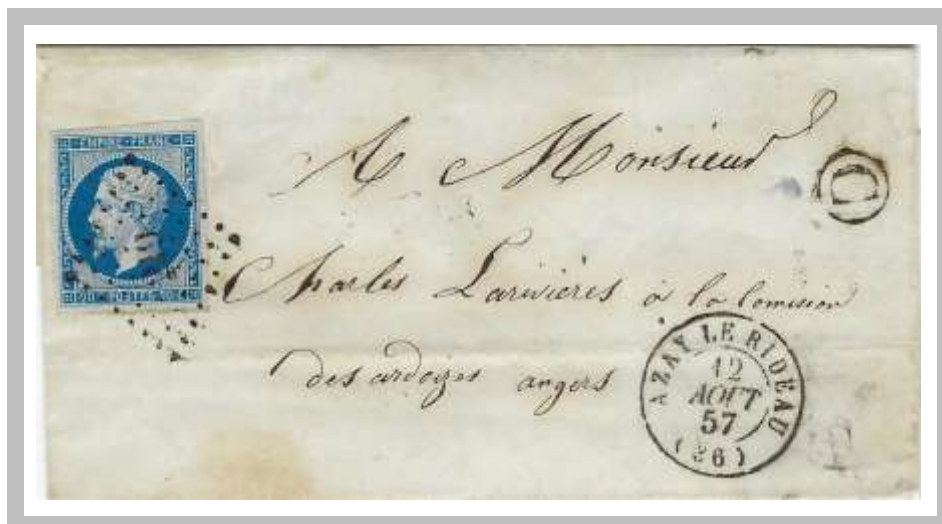 EMPIRE FRANC
20 C POSTES 20 C
A Monsieur
D
Charles Larivières à la Comision
des ardoizes angers
AZAY LE RIDEAU
12
AOUT
57
(36)